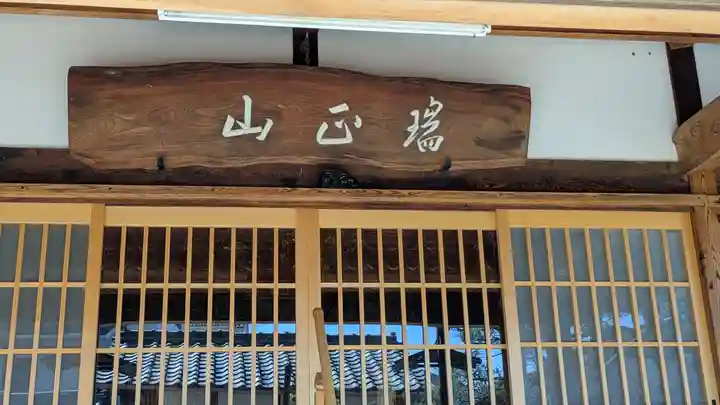 瑞正山